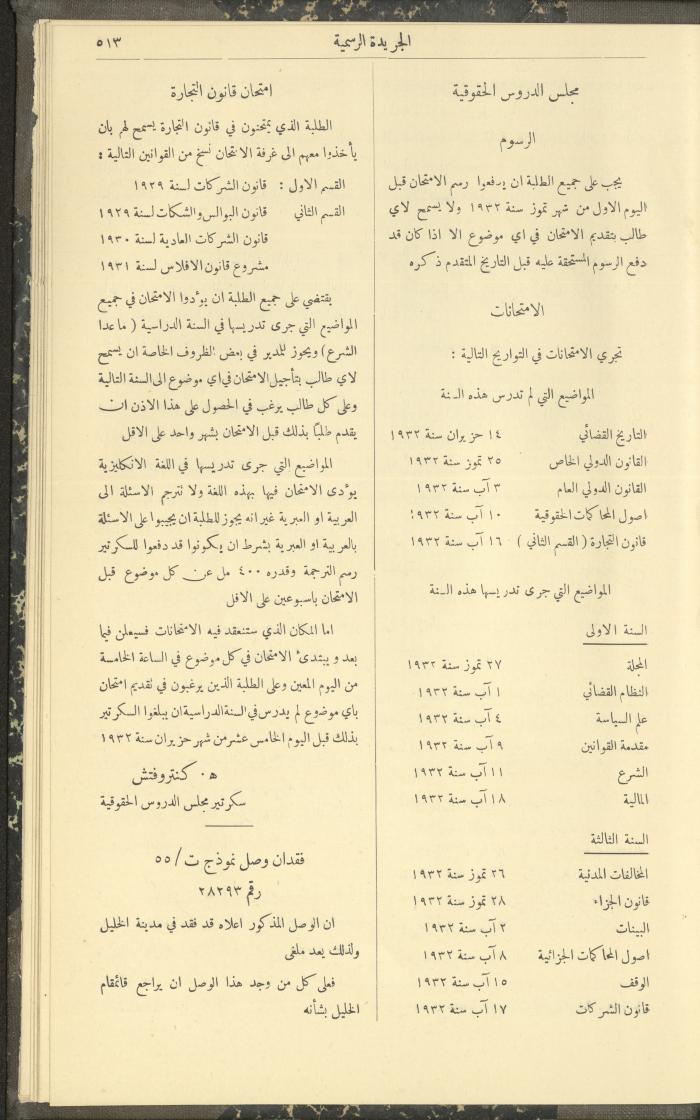 الجريدة الرسمية
٥١٣
مجلس الدروس الحقوقية
الرسوم
يجب على جميع الطلبة ان يدفعوا رسم الامتحان قبل
اليوم الاول من شهر تموز سنة ١٩٣٢ ولا يسمح لاي
طالب بتقديم الامتحان في اي موضوع الا اذا كان قد
دفع الرسوم المستحقة عليه قبل التاريخ المتقدم ذكره
الامتحانات
تجري الامتحانات في التواريخ التالية :
المواضيع التي لم تدرس هذه السنة
التاريخ القضائي ١٤ حزيران سنة ١٩٣٢
القانون الدولي الخاص ٢٥ تموز سنة ١٩٣٢
القانون الدولي العام ٣ آب سنة ١٩٣٢
اصول المحاكمات الحقوقية ١٠ آب سنة ١٩٣٢
قانون التجارة ( القسم الثاني ) ١٦ آب سنة ١٩٣٢
المواضيع التي جرى تدريسها هذه السنة
السنة الاولى
المجلة ٢٧ تموز سنة ١٩٣٢
النظام القضائي ١ آب سنة ١٩٣٢
علم السياسة ٤ آب سنة ١٩٣٢
مقدمة القوانين ٩ آب سنة ١٩٣٢
الشرع ١١ آب سنة ١٩٣٢
المالية ١٨ آب سنة ١٩٣٢
السنة الثالثة
المخالفات المدنية ٢٦ تموز سنة ١٩٣٢
قانون الجزاء ٢٨ تموز سنة ١٩٣٢
البينات ٢ آب سنة ١٩٣٢
اصول المحاكمات الجزائية ٨ آب سنة ١٩٣٢
الوقف ١٥ آب سنة ١٩٣٢
قانون الشركات ١٧ آب سنة ١٩٣٢
امتحان قانون التجارة
الطلبة الذي يمتحنون في قانون التجارة يسمح لهم بان
يأخذوا معهم الى غرفة الامتحان نسخ من القوانين التالية :
القسم الاول : قانون الشركات لسنة ١٩٢٩
القسم الثاني قانون البوالس والشكات لسنة ١٩٢٩
قانون الشركات العادية لسنة ١٩٣٠
مشروع قانون الافلاس لسنة ١٩٣١
يقتضي على جميع الطلبة ان يؤدوا الامتحان في جميع
المواضيع التي جرى تدريسها في السنة الدراسية ( ما عدا
الشرع ) ويجوز للمدير في بعض الظروف الخاصة ان يسمح
لاي طالب بتأجيل الامتحان في اي موضوع الى السنة التالية
وعلى كل طالب يرغب في الحصول على هذا الاذن ان
يقدم طلبًا بذلك قبل الامتحان بشهر واحد على الاقل
المواضيع التي جرى تدريسها في اللغة الانكليزية
يؤدى الامتحان فيها بهذه اللغة ولا تترجم الاسئلة الى
العربية او العبرية غير انه يجوز للطلبة ان يجيبوا على الاسئلة
بالعربية او العبرية بشرط ان يكونوا قد دفعوا للسكرتير
رسم الترجمة وقدره ٤٠٠ مل عن كل موضوع قبل
الامتحان باسبوعين على الاقل
اما المكان الذي ستنعقد فيه الامتحانات فسيعلن فيما
بعد ويبتدئ الامتحان في كل موضوع في الساعة الخامسة
من اليوم المعين وعلى الطلبة الذين يرغبون في تقديم امتحان
باي موضوع لم يدرس في السنة الدراسية ان يبلغوا السكرتير
بذلك قبل اليوم الخامس عشر من شهر حزيران سنة ١٩٣٢
ه٠ كنتروفتش
سكرتير مجلس الدروس الحقوقية
فقدان وصل نموذج ت/٥٥
رقم ٢٨٢٩٣
ان الوصل المذكور اعلاه قد فقد في مدينة الخليل
ولذلك يعد ملغى
فعلى كل من وجد هذا الوصل ان يراجع قائمقام
الخليل بشأنه